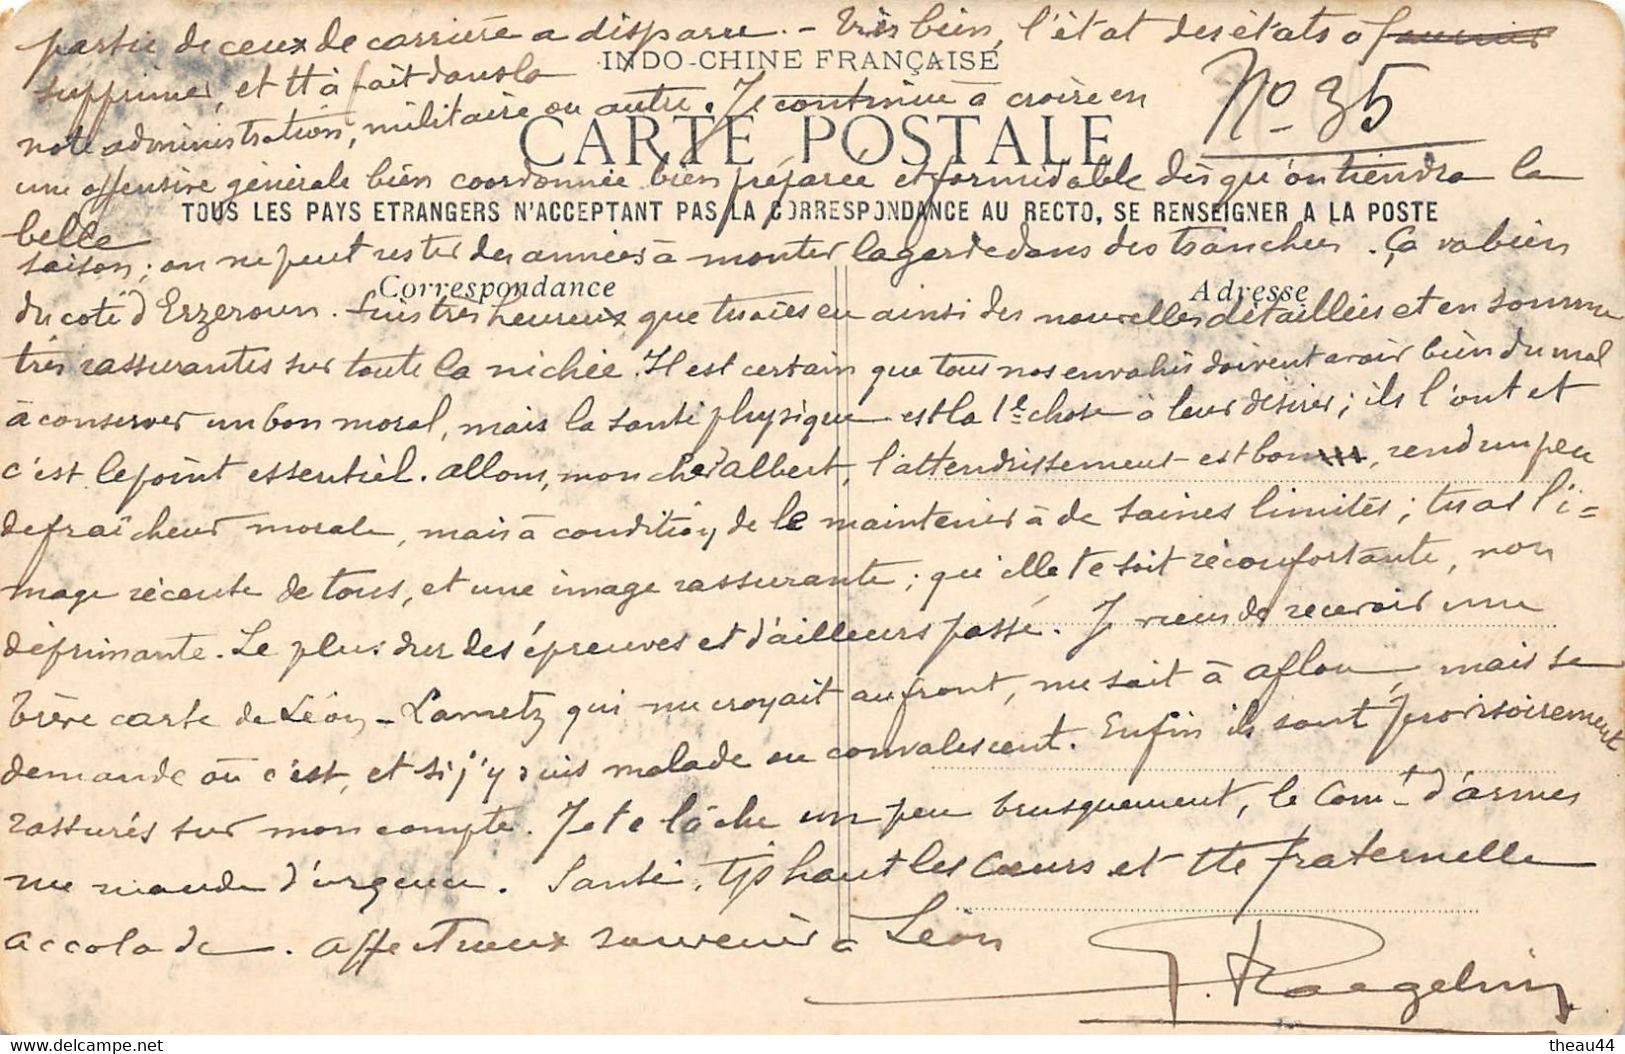 partie de ceux de carrière a disparu. – Très bien, l'état des états à fournir
INDO-CHINE FRANÇAISE
supprimer, et tt à fait dans la
note administration, militaire ou autre. Je continue à croire en
No 35
CARTE POSTALE
une offensive générale bien coordonnée bien préparée et formidable dès qu'on tiendra la
TOUS LES PAYS ETRANGERS N'ACCEPTANT PAS LA CORRESPONDANCE AU RECTO, SE RENSEIGNER A LA POSTE
belle
saison; on ne peut rester des années à monter la garde dans des tranchées. Ça va bien
Correspondance
Adresse
du coté d'Erzeroum. Suis très heureux que tu aies eu ainsi des nouvelles détaillées et en somme
très rassurantes sur toute la nichée. Il est certain que tous nos envahis doivent avoir bien du mal
à conserver un bon moral, mais la santé physique est la 1e chose à leur désirer; ils l'ont et
c'est le point essentiel. Allons, mon cher Albert, l'attendrissement est bon, rend un peu
de fraîcheur morale, mais à condition de le maintenir à de saines limites; tu as l'i=
mage récente de tous, et une image rassurante; qu'elle te soit réconfortante, non
déprimante. Le plus dur des épreuves est d'ailleurs passé. Je viens de recevoir une
brève carte de Léon-Lametz qui me croyait au front, me sait à Aflou, mais se
demande où c'est, et si j'y suis malade ou convalescent. Enfin ils sont provisoirement
rassurés sur mon compte. Je te lâche un peu brusquement, le Comt d'armes
me mande d'urgence. Santé, tjs haut les cœurs et tte fraternelle
accolade. Affectueux souvenir à Léon
theau44